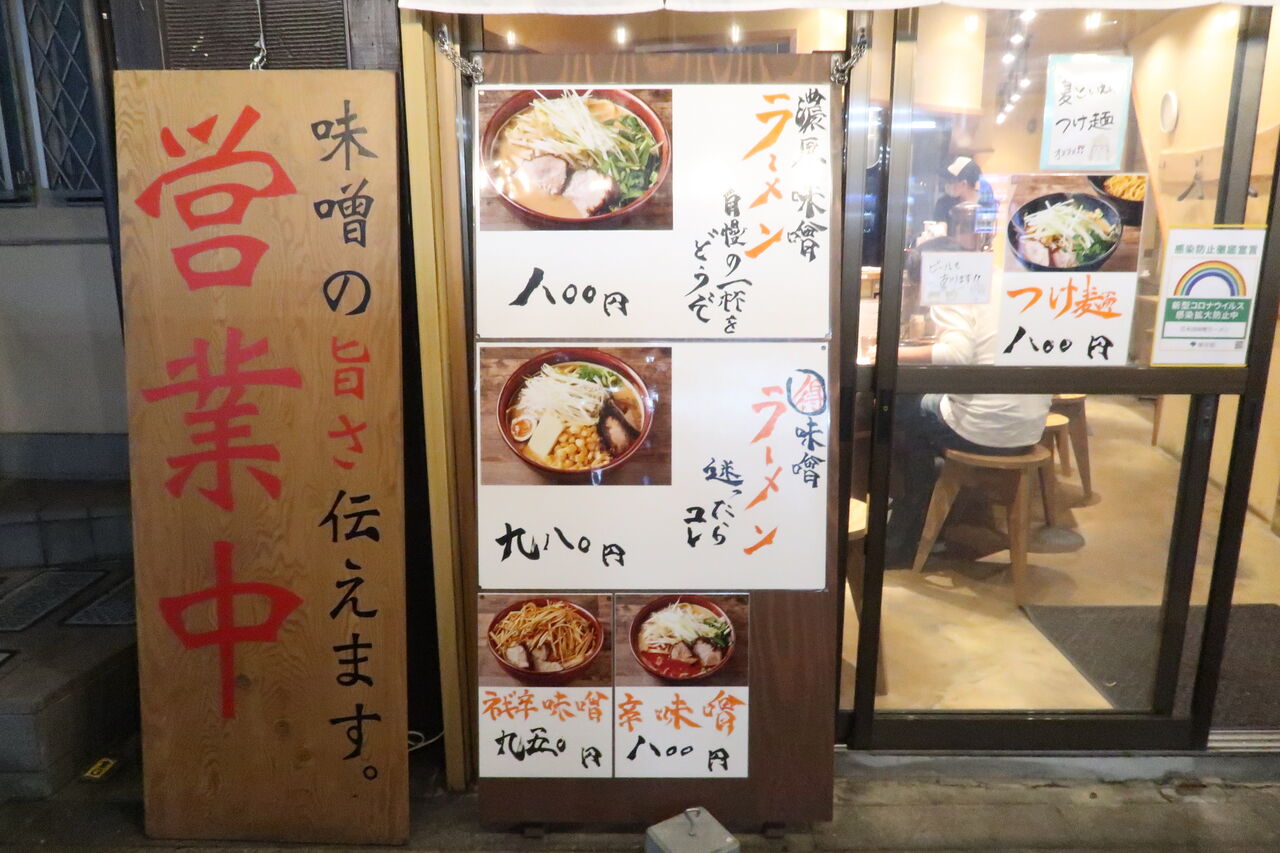 味噌の旨さ伝えます。
営業中
濃厚味噌
ラーメン
自慢の一杯を
どうぞ
八〇〇円
得味噌
ラーメン
迷ったら
コレ
九八〇円
ネギ辛味噌
九五〇円
辛味噌
八〇〇円
つけ麺
オススメ!!
ビールも
あります!!
つけ麺
八〇〇円
感染防止徹底宣言
新型コロナウイルス
感染拡大防止中